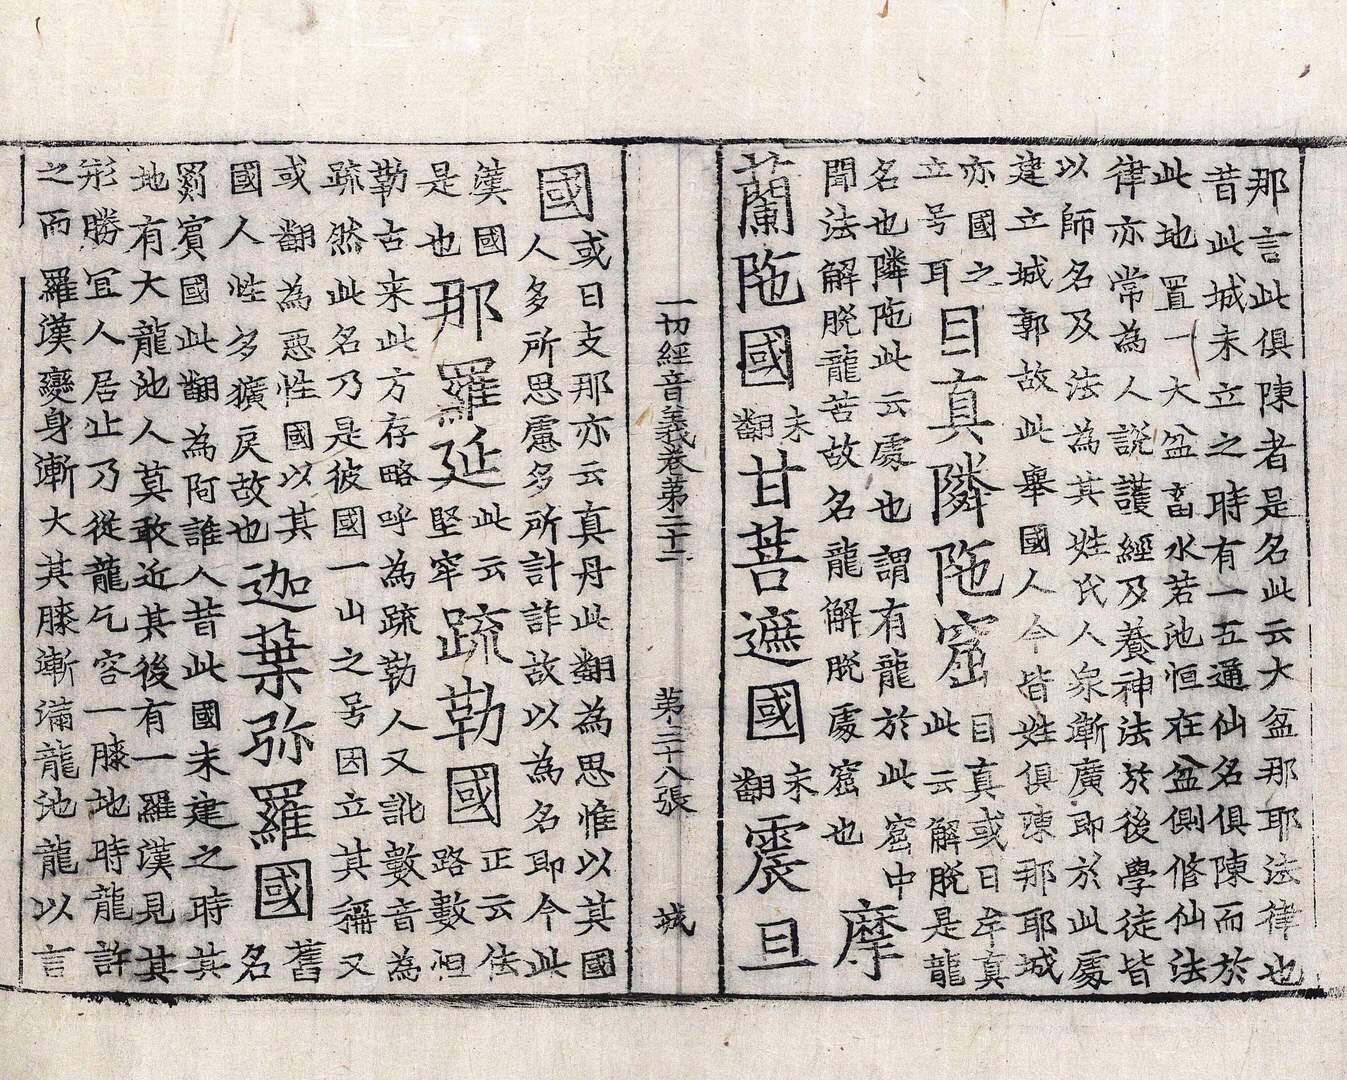 那言此俱陳者是名此云大盆那耶法律也
昔此城未立之時有一五通仙名俱陳而於
此地置一大盆畜水若池恒在盆側修仙法
律亦常為人說護經及養神法於後學徒皆
以師名及法為其姓氏人衆漸廣即於此處
建立城郭故此舉國人今皆姓俱陳那耶城
亦國之
立号耳
目真隣陁窟
目真或曰牟真
此云解脫是龍
名也隣陁此云處也謂有龍於此窟中
聞法解脫龍苦故名龍解脫處窟也
摩
蘭陁國
未
翻
甘菩遮國
未
翻
震旦
一切經音義卷第二十二 第三十八張 城
國
或曰支那亦云真丹此翻為思惟以其國
人多所思慮多所計詐故以為名即今此
漢國
是也
那羅延
此云
堅牢
疏勒國
正云佉
路數怛
勒古来此方存略呼為疏勒人又訛數音為
疏然此名乃是彼國一山之号因立其稱又
或翻為惡性國以其
國人性多獷戾故也
迦葉弥羅國
舊
名
罽賓國此翻為阿誰人昔此國未建之時其
地有大龍池人莫敢近其後有一羅漢見其
形勝冝人居止乃從龍乞容一膝地時龍許
之而羅漢變身漸大其膝漸滿龍池龍以言